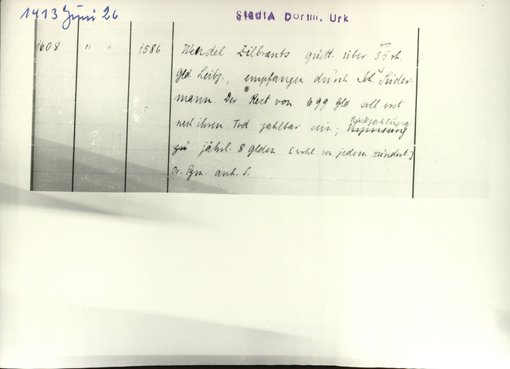 1413 Juni 26
StadtA Dortm. Urk
1608 " " 1586 Wendel Zilbrants quitt. über 55 rh.
Gld Leibz., empfangen durch Joh Süder-
mann. Der Rest von 699 Gld soll erst
nach ihrem Tod zahlbar sein; Rückzahlung
Verzinsung
zu jährl. 8 Gulden (wohl von jedem Hundert)
Or. Pgm. anh. S.